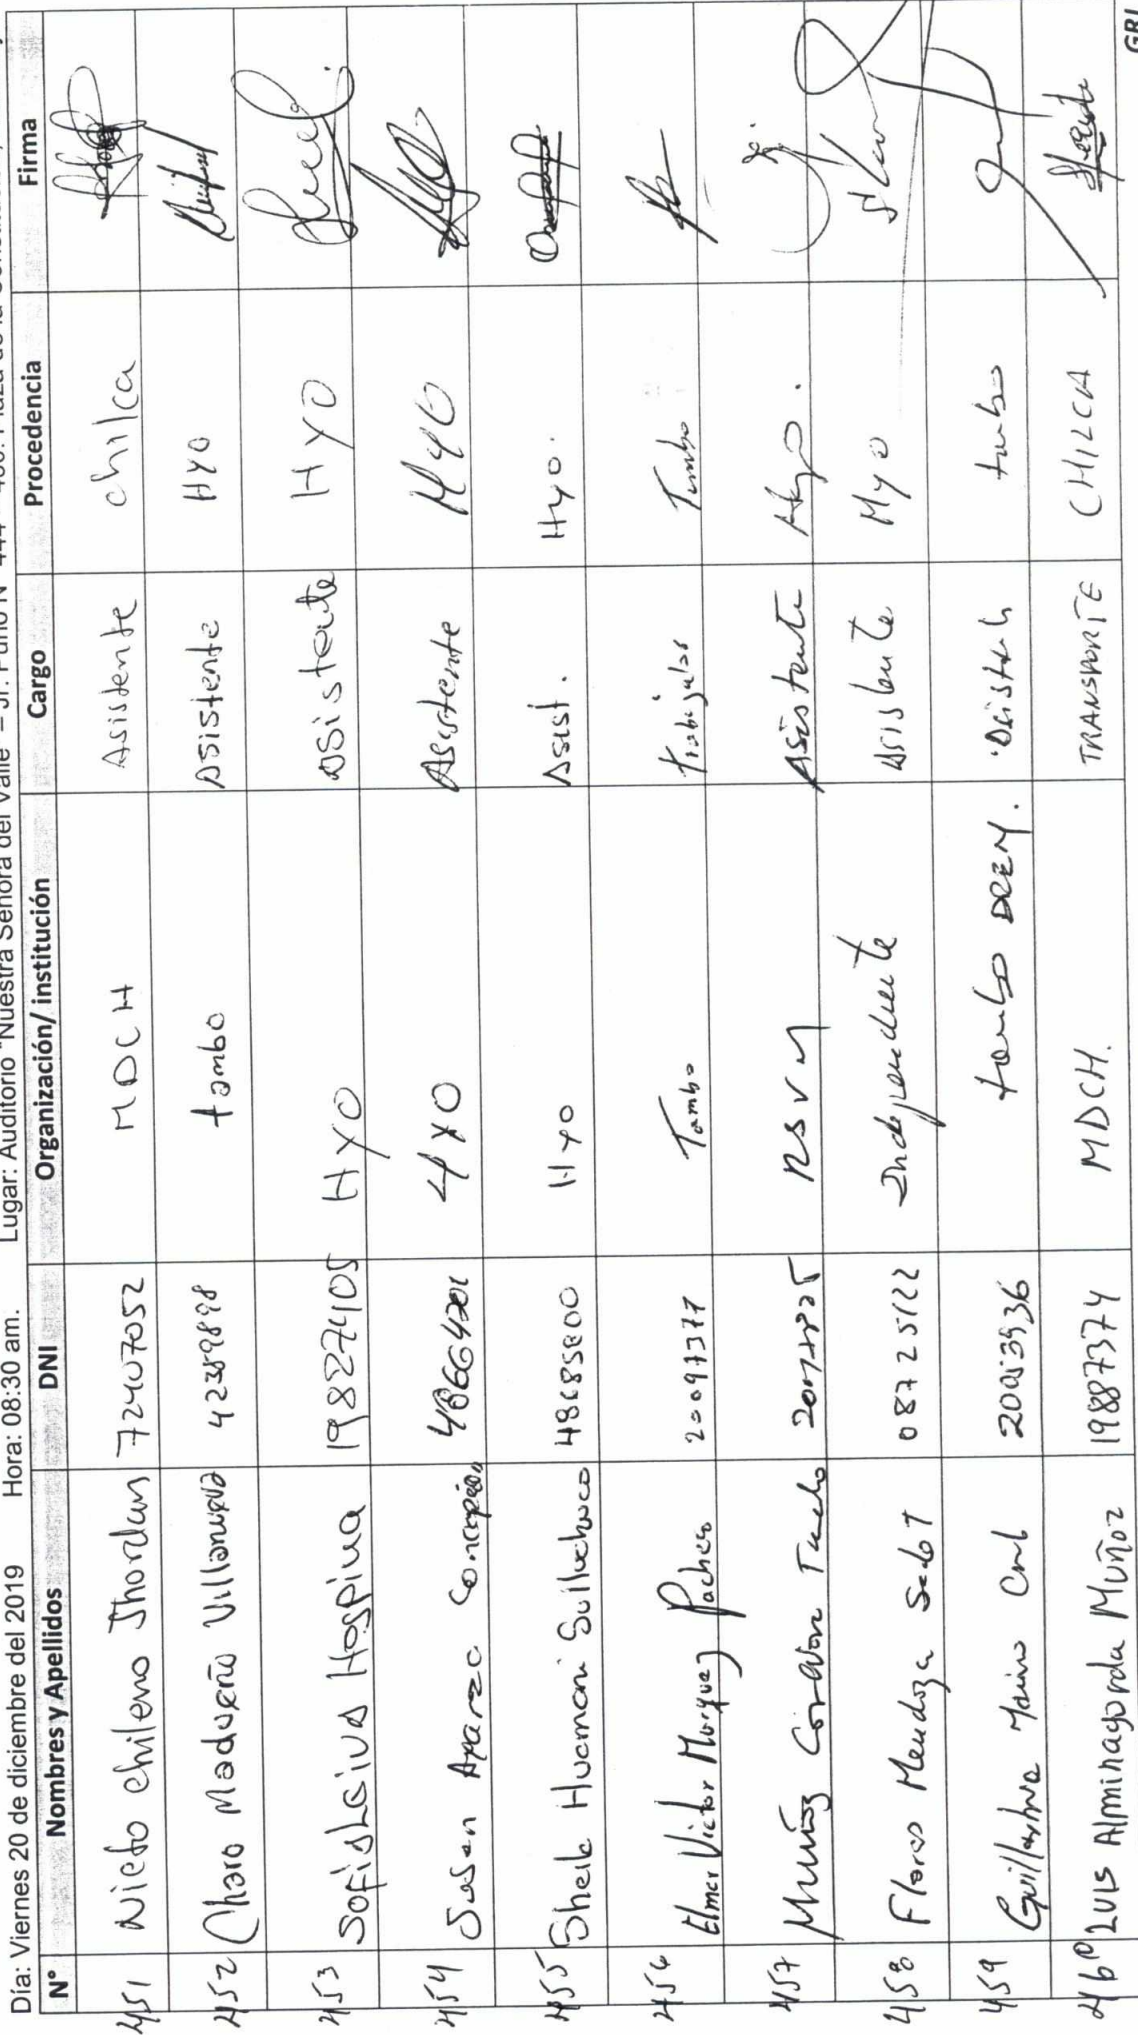 Día: Viernes 20 de diciembre del 2019 Hora: 08:30 am. Lugar: Auditorio "Nuestra Señora del Valle" – Jr. Puno N°
N° Nombres y Apellidos DNI Organización/ institución Cargo Procedencia Firma
451 Nieto Chileno Jhordan 72407052 MDCH Asistente chilca
452 Charo Madueño Villanueva tambo Asistente HYO
453 Sofia Leiva Hospina 19827405 HYO Asistente HYO
454 Susan Apaza Concepción HYO Asistente HYO
455 Sheila Huamani Sullcahuaco Hyo Asist. Hyo.
456 Elmer Victor Marquez Pacheco 20097377 Tambo Trabajador Tambo
457 Muñoz Asistente Hyo.
458 Flores Mendoza 08725122 Independiente Asistente Hyo
459 20053936 tambo DREM. Asistente tambo
460 LUIS Alminagorda Muñoz 19887374 MDCH. TRANSPORTE CHILCA
GRJ